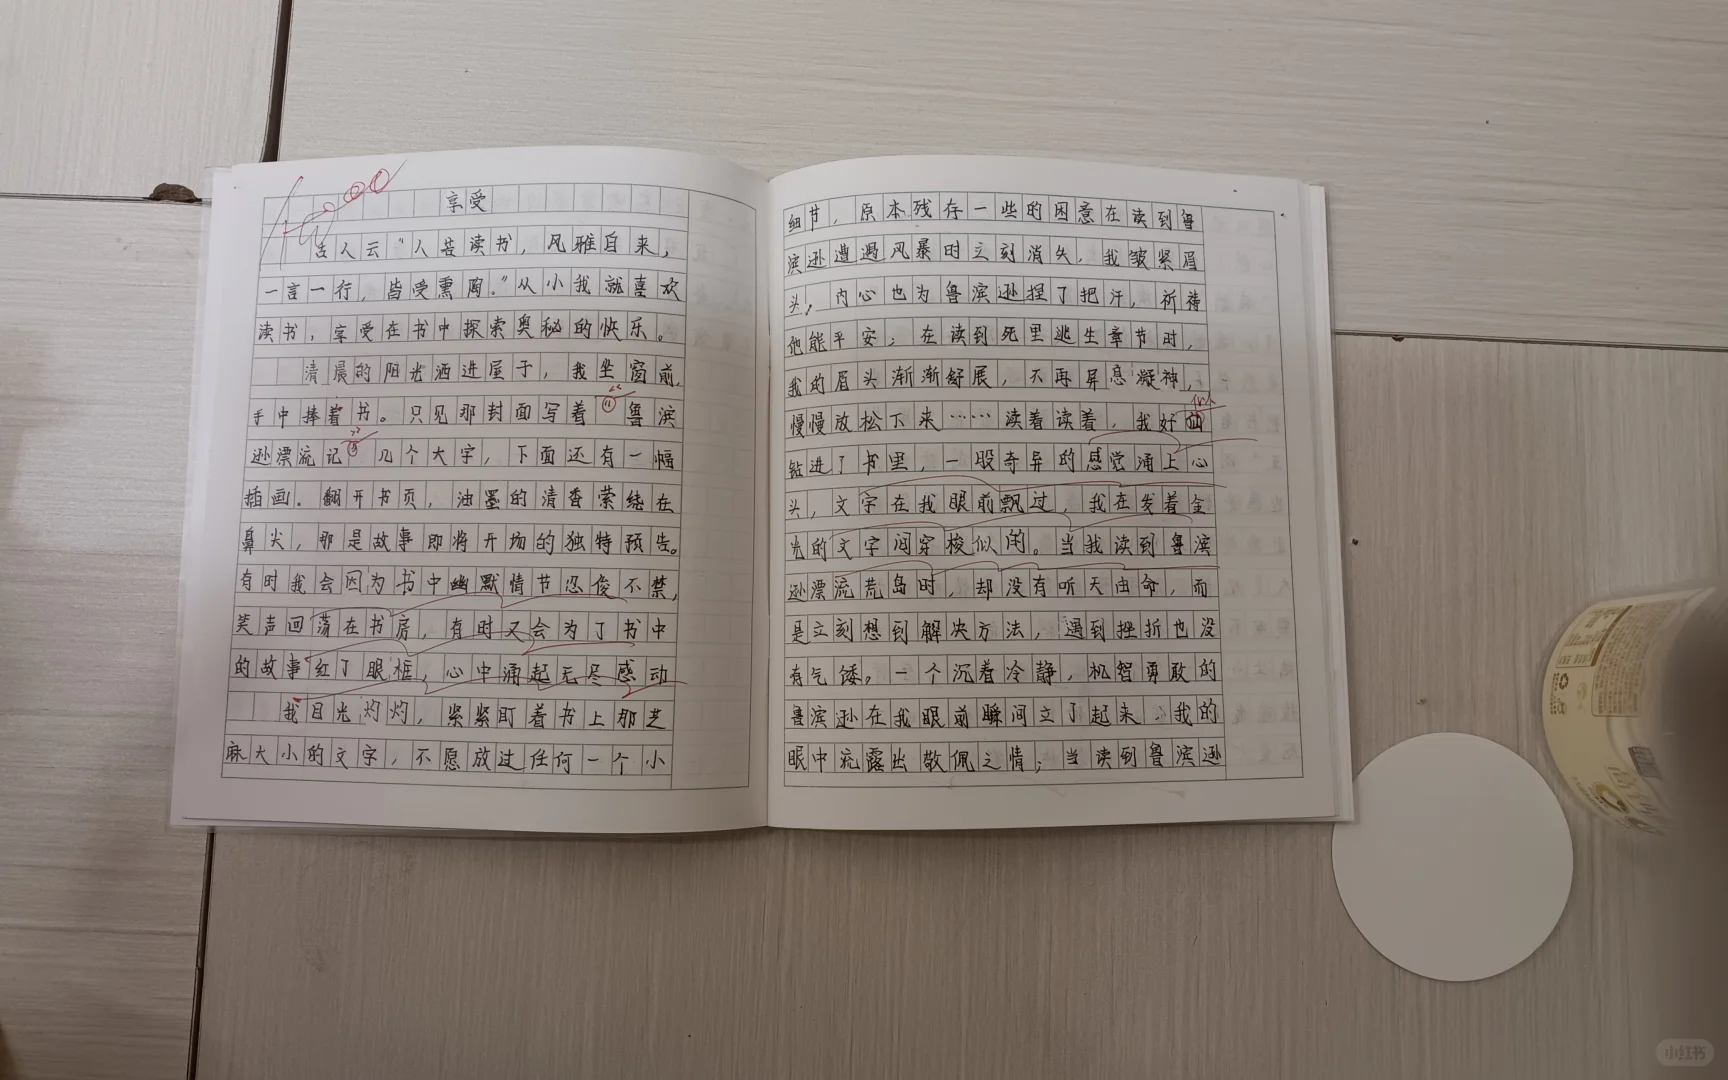 享受
古人云“人若读书，风雅自来，
一言一行，皆受熏陶。”从小我就喜欢
读书，享受在书中探索奥秘的快乐。
清晨的阳光洒进屋子，我坐窗前，
手中捧着书。只见那封面写着“鲁滨
逊漂流记”几个大字，下面还有一幅
插画。翻开书页，油墨的清香萦绕在
鼻尖，那是故事即将开场的独特预告。
有时我会因为书中幽默情节忍俊不禁，
笑声回荡在书房，有时又会为了书中
的故事红了眼框，心中涌起无尽感动
我目光灼灼，紧紧盯着书上那芝
麻大小的文字，不愿放过任何一个小
细节，原本残存一些的困意在读到鲁
滨逊遭遇风暴时立刻消失，我皱紧眉
头，内心也为鲁滨逊捏了把汗，祈祷
他能平安；在读到死里逃生章节时，
我的眉头渐渐舒展，不再屏息凝神，
慢慢放松下来……读着读着，我好似
钻进了书里，一股奇异的感觉涌上心
头，文字在我眼前飘过，我在发着金
光的文字间穿梭似的。当我读到鲁滨
逊漂流荒岛时，却没有听天由命，而
是立刻想到解决方法，遇到挫折也没
有气馁。一个沉着冷静，机智勇敢的
鲁滨逊在我眼前瞬间立了起来，我的
眼中流露出敬佩之情；当读到鲁滨逊
小红书